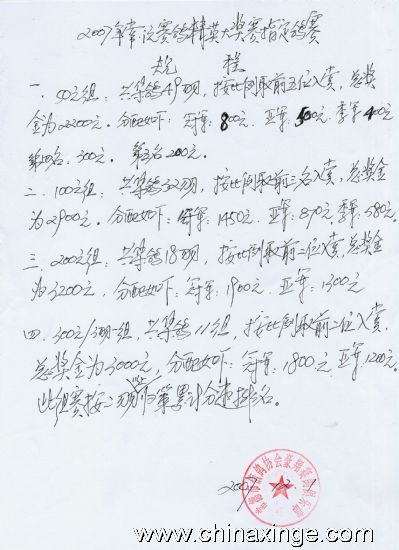 2007年常设赛鸽精英大奖赛指定鸽赛
规 程
一. 50元组: 共集鸽49羽, 按比例取前五位入赏, 总奖
金为2200元。分配如下: 冠军: 800元. 亚军: 500元. 季军400
第四名, 300元。第五名200元。
二. 100元组: 共集鸽32羽, 按比例取前三名入赏, 总奖金
为2900元。分配如下: 冠军: 1450元. 亚军: 870元, 季军: 580元.
三. 200元组: 共集鸽18羽, 按比例取前二位入赏, 总奖金
为3200元, 分配如下: 冠军: 1900元. 亚军: 1300元
四. 300元/3羽一组, 共集鸽11组, 按比例取前二位入赏,
总奖金为3000元, 分配如下: 冠军: 1800元. 亚军: 1200元.
此组赛按二羽归巢累计分速排名。
2007 12. 1
www.chinaxinge.com